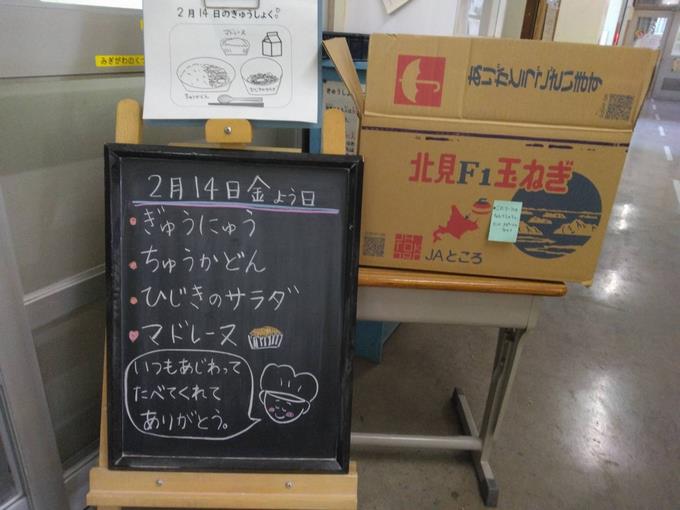 2月14日のきゅうしょく。
マドレーヌ
ちゅうかどん
ひじきのサラダ
みぎがわのくつ
2月14日金よう日
ぎゅうにゅう
ちゅうかどん
ひじきのサラダ
マドレーヌ
いつもあじわって
たべてくれて
ありがとう。
ありがとうございます
北見F1玉ねぎ
JAところ